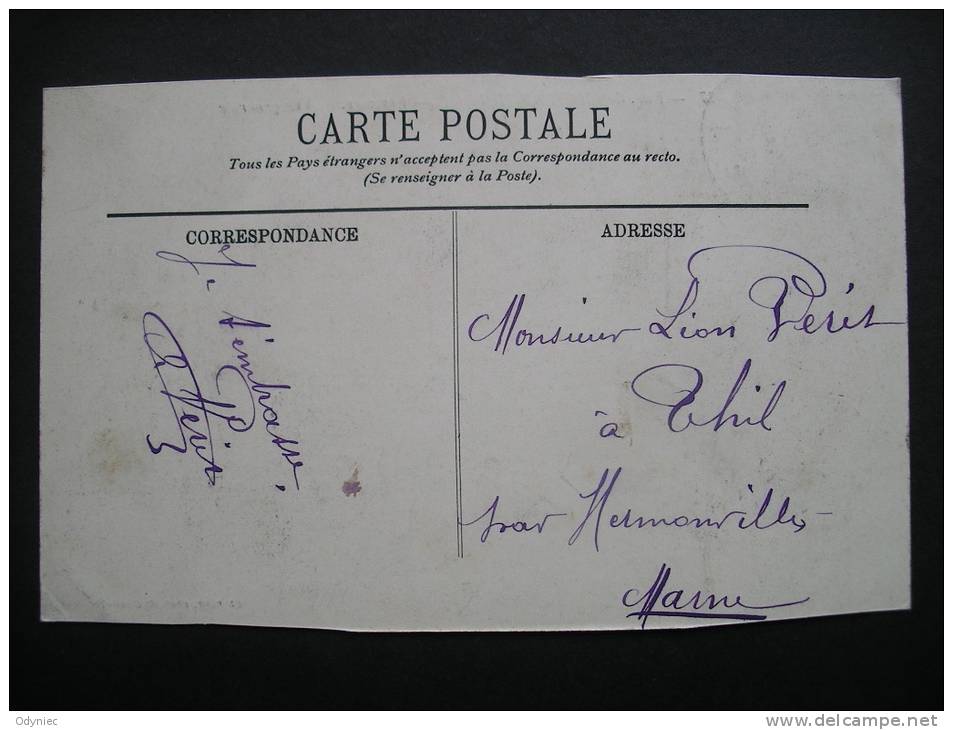 CARTE POSTALE
Tous les Pays étrangers n'acceptent pas la Correspondance au recto.
(Se renseigner à la Poste).
CORRESPONDANCE
J. t'embrasse,
Verit
ADRESSE
Monsieur Léon Vérit
à Thil
par Hermonville
Marne
Odyniec
www.delcampe.net